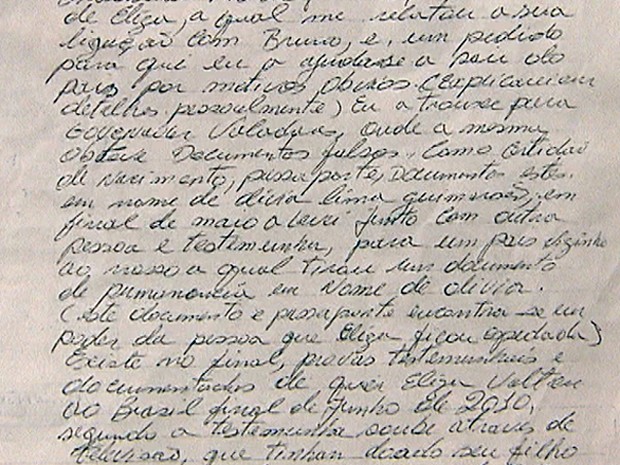 de Eliza, a qual me relatou a sua
ligação com Bruno, e, um pedido
para que eu a ajudasse a sair do
país por motivos obvios. (Explicarei em
detalhes pessoalmente) Eu a trouxe para
Governador Valadares, onde a mesma
obteve Documentos falsos, como certidão
de Nascimento, passaporte, Documentos estes
em nome de olivia lima guimarães, em
final de maio a levei junto com outra
pessoa e testemunha, para um país vizinho
ao nosso a qual tirou um documento
de permanencia em Nome de olivia.
(este documento e passaporte encontra-se em
poder da pessoa que Eliza ficou ospedada)
Existe no final, provas testemunhais e
documentadas de que Eliza Voltou
ao Brasil final de Junho de 2010,
segundo a testemunha soube através de
televisão, que tinham doado seu filho